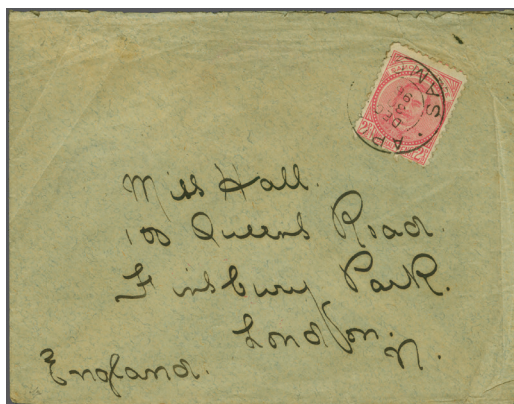 SAM
AP
2½ 2½
Miss Hall.
100 Queens Road.
Finsbury Park.
London.
N.
England.